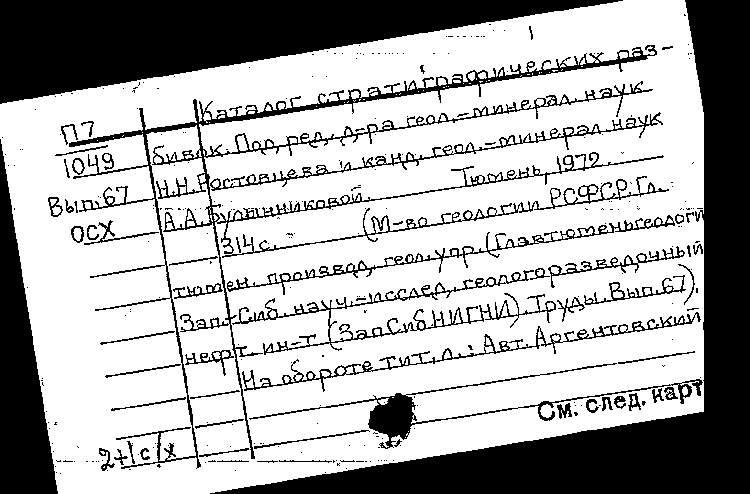 Каталог стратиграфических раз-
П7
1049
Вып.67
ОСХ
бивок. Под ред. д-ра геол.-минерал. наук
Н.Н.Ростовцева и канд. геол.-минерал. наук
А.А.Булынниковой. Тюмень, 1972.
314с. (М-во геологии РСФСР. Гл.
тюмен. производ. геол. упр. (Главтюменьгеологи
Зап.-Сиб. науч.-исслед. геологоразведочный
нефт. ин-т (ЗапСибНИГНИ). Труды. Вып.67).
На обороте тит. л.: Авт. Аргентовский
2+1с/х
См. след. карт